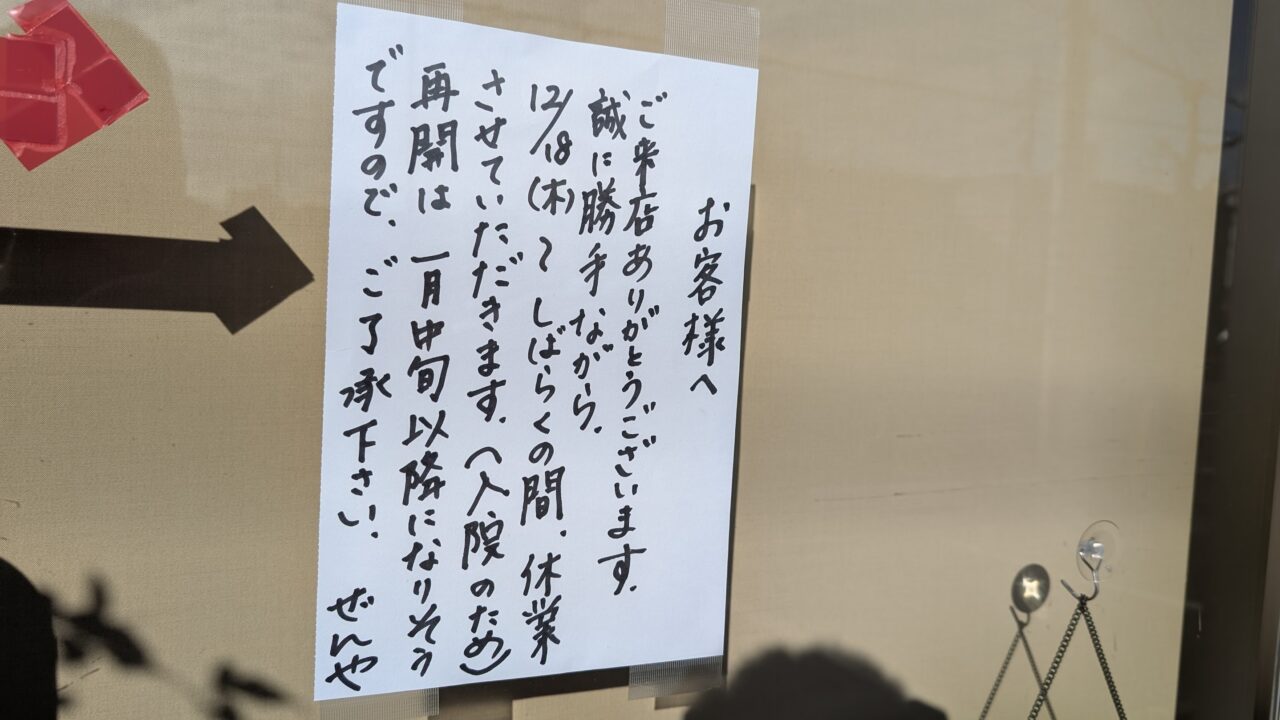 お客様へ
ご来店ありがとうございます.
誠に勝手ながら.
12/18(木)〜しばらくの間.休業
させていただきます.(入院のため)
再開は一月中旬以降になりそう
ですので.ご了承下さい.ぜんや